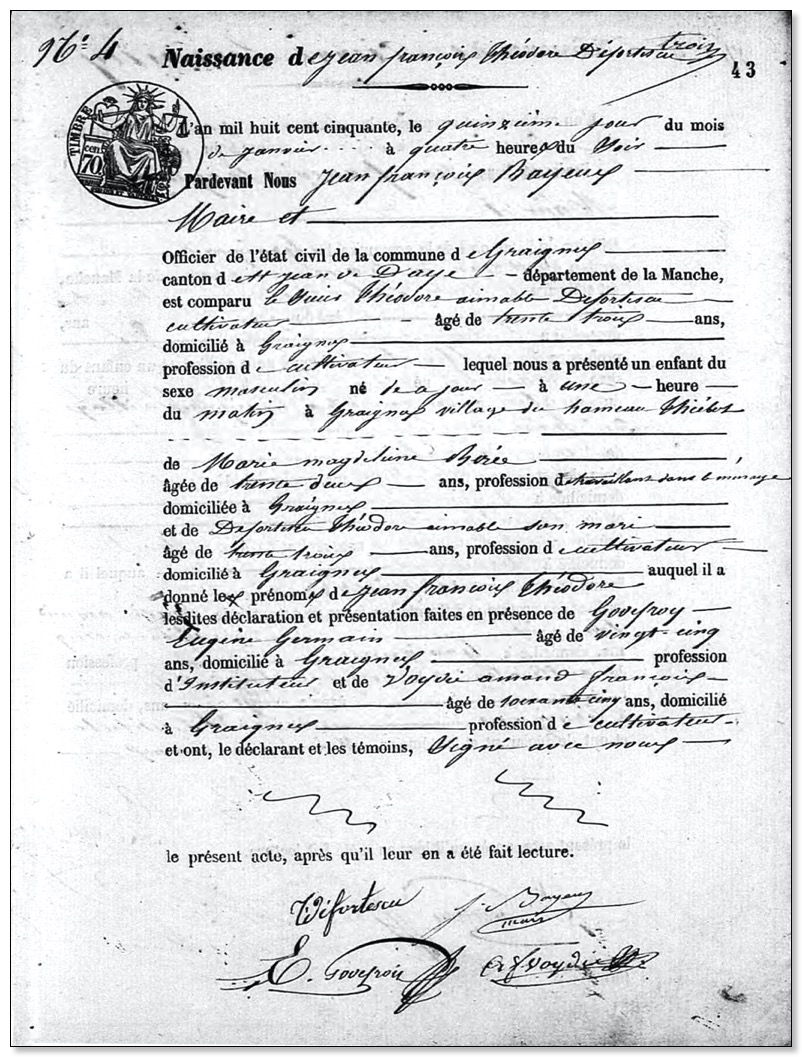 N.o 4 Naissance de jean françois Théodore Défortescu
trois
43
TIMBRE
cent
70
L'an mil huit cent cinquante, le quinzième jour du mois
de janvier à quatre heures du Soir
Pardevant Nous Jean françois Bayeux
Maire et
Officier de l'état civil de la commune de Graignes
canton de St jean de Daye département de la Manche,
est comparu le Sieur Théodore aimable Defortescu
cultivateur âgé de trente trois ans,
domicilié à Graignes
profession de cultivateur lequel nous a présenté un enfant du
sexe masculin né de ce jour à une heure
du matin à Graignes village du hameau Thiébot
de Marie magdeleine
âgée de trente deux ans, profession de travaillant dans le ménage
domiciliée à Graignes
et de Defortescu Théodore aimable son mari
âgé de trente trois ans, profession de cultivateur
domicilié à Graignes auquel il a
donné les prénoms de jean françois Théodore
lesdites déclaration et présentation faites en présence de Godefroy
Eugène Germain âgé de vingt-cinq
ans, domicilié à Graignes profession
d'Instituteur et de Voydie amand françois
âgé de soixante cinq ans, domicilié
à Graignes profession de cultivateur
et ont, le déclarant et les témoins, Signé avec nous
le présent acte, après qu'il leur en a été fait lecture.
Défortescu J. Bayeux
maire
E. Godefroy a f voydie